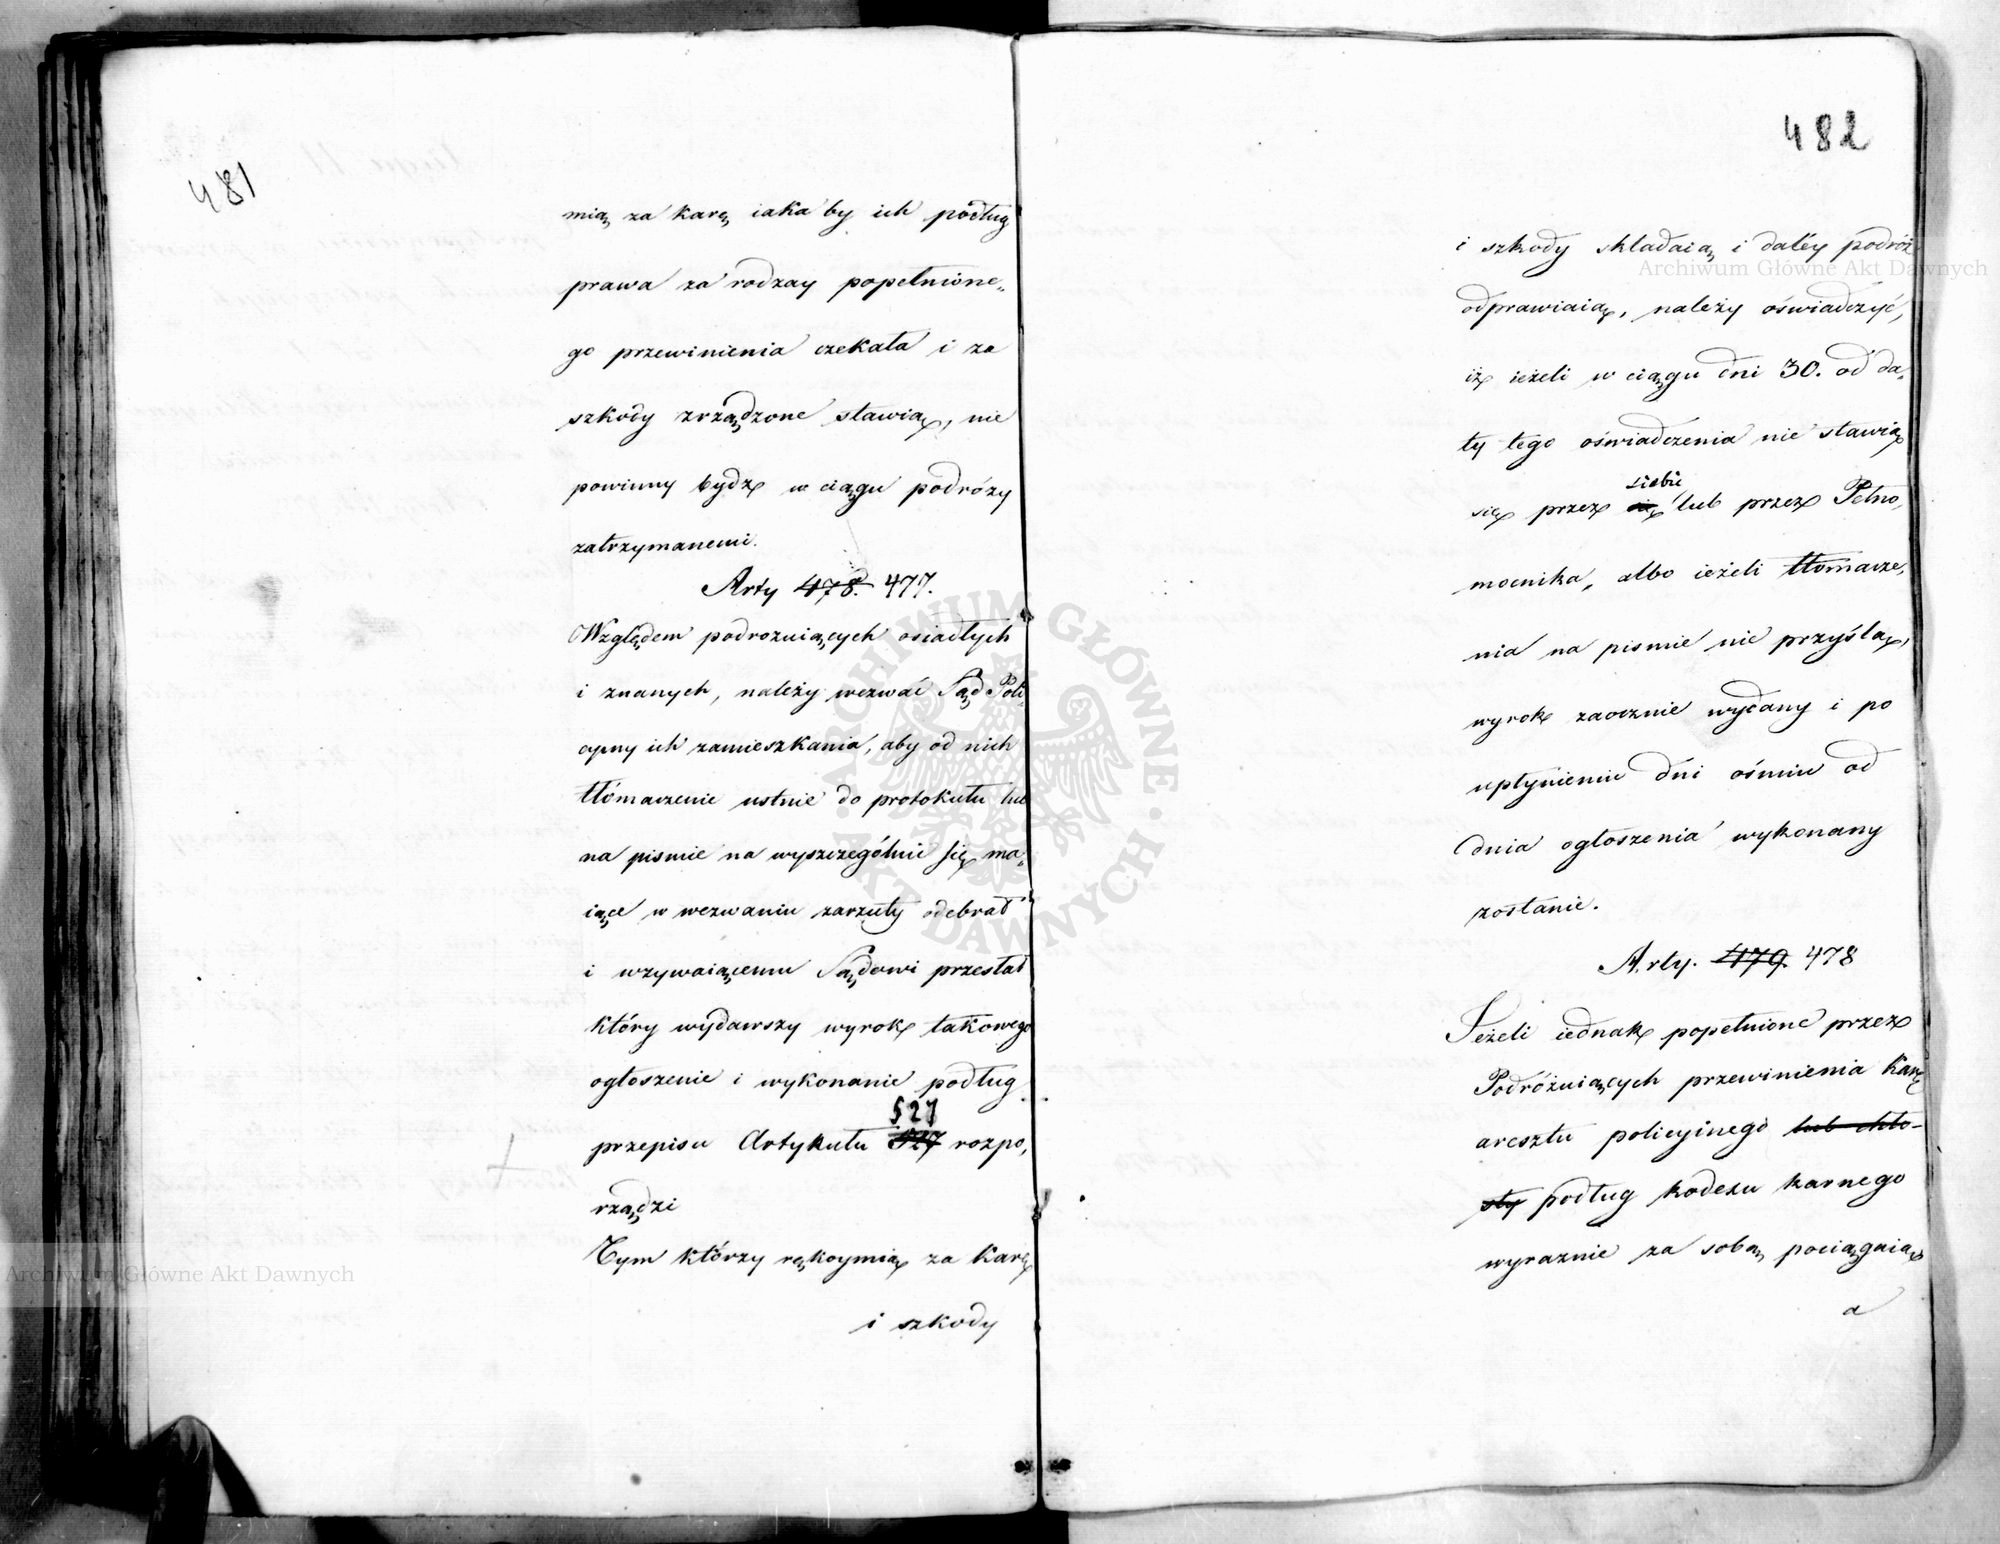 481
mią za karę iaka by ich podług
prawa za rodzay popełnione„
go przewinienia czekała i za
szkody zrządzone stawią, nie
powinny bydź w ciągu podróży
zatrzymanemi.
Arty 478. 477.
Względem podrozuiących osiadłych
i znanych, należy wezwać Sąd Poli„
cyiny ich zamieszkania, aby od nich
tłómaczenie ustnie do protokułu lub
na pismie na wyszczególnić się ma„
iące w wezwaniu zarzuty odebrał
i wzywaiącemu Sądowi przesłał
który wydawszy wyrok takowego
ogłoszenie i wykonanie podług
527
przepisu Artykułu 527 rozpo,
rządzi
Tym którzy rękoymią za karę
i szkody
482
i szkody składaią i daléy podróż
odprawiaią, należy oświadczyć,
iż ieżeli w ciągu dni 30. od da„
ty tego oświadczenia nie stawią
siebie
się przez się lub przez Pełno,
mocnika, albo ieżeli tłomacze,
nia na pismie nie przyślą,
wyrok zaocznie wydany i po
upłynieniu dni ośmiu od
dnia ogłoszenia wykonany
zostanie.
Arty. 479. 478
Jeżeli iednak popełnione przez
Podróżuiących przewinienia karę
aresztu policyinego lub chło-
sty podług kodexu karnego
wyraznie za sobą pociągaią
a
Archiwum Główne Akt Dawnych
Archiwum Główne Akt Dawnych
ARCHIWUM GŁÓWNE · AKT DAWNYCH ·